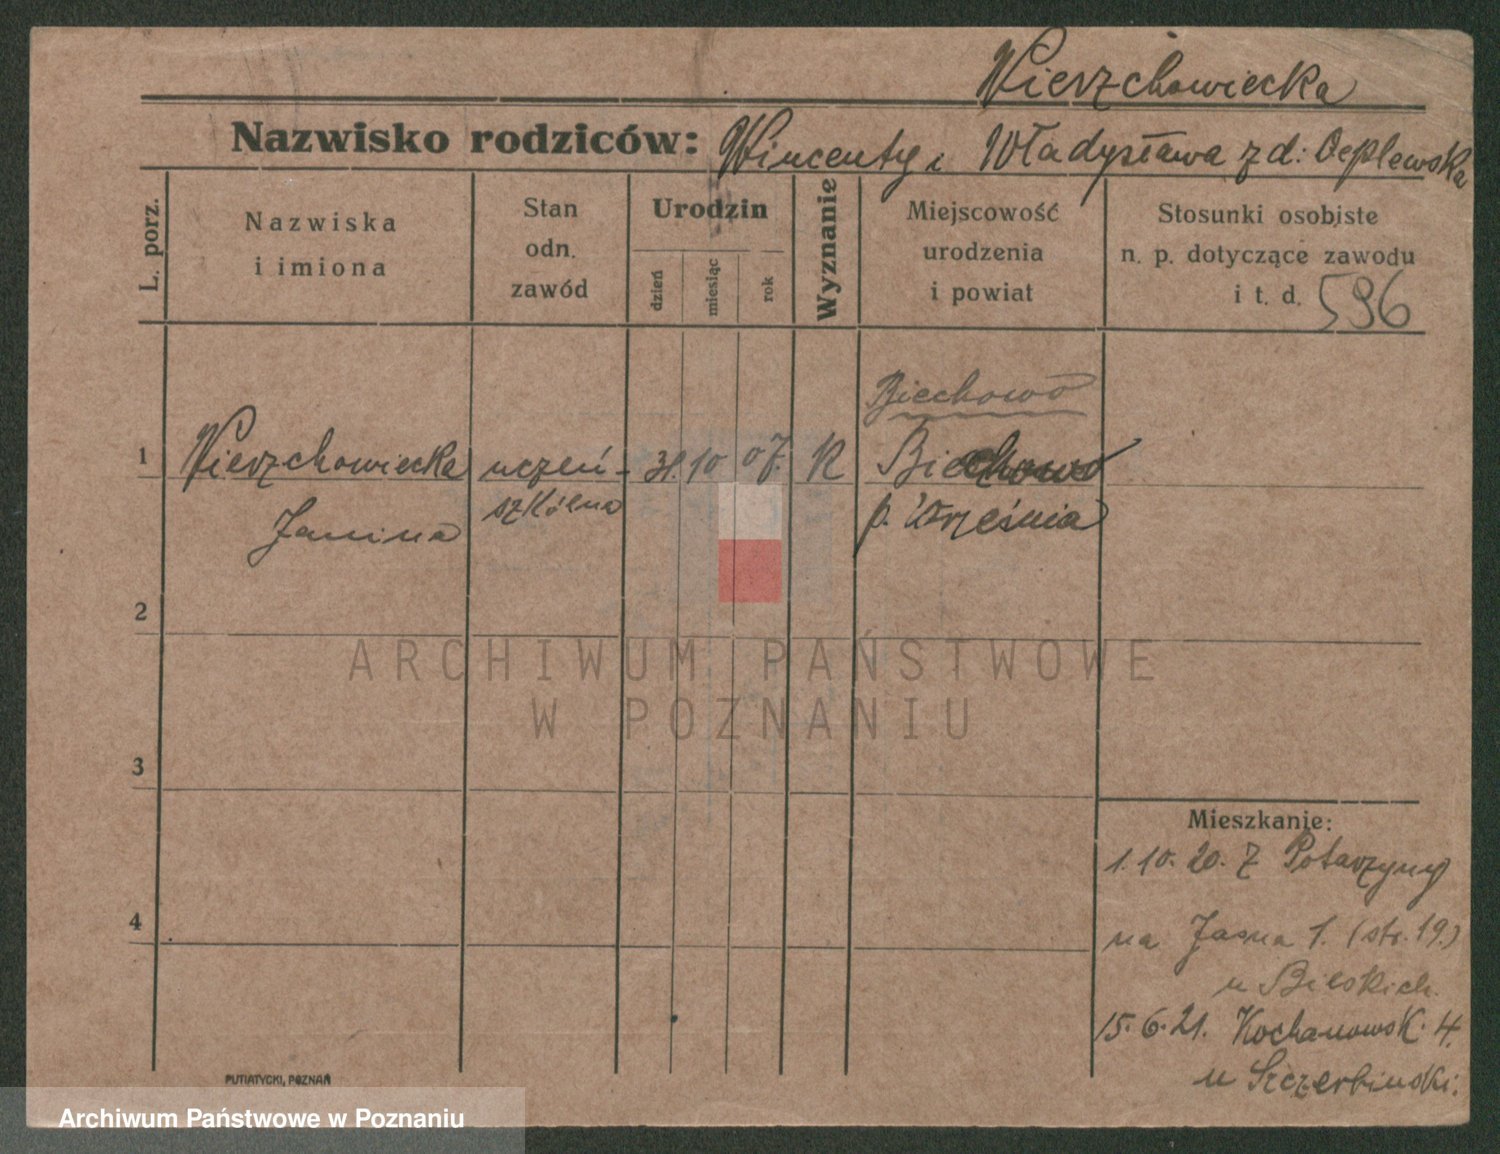 Wierzchowiecka
Nazwisko rodziców: Wincenty i Władysława z d: Ceplewska
L. porz.
Nazwiska
i imiona
Stan
odn.
zawód
Urodzin
dzień
miesiąc
rok
Wyznanie
Miejscowość
urodzenia
i powiat
Stosunki osobiste
n. p. dotyczące zawodu
i t. d. 596
Biechowo
1 Wierzchowiecka uczeń- 31. 10 07. K Biechowo
Janina szkólna p. Września
2
3
4
Mieszkanie:
1.10.20. Z Potarzyny
na Jasna 1. (str. 19.)
u Bilskich.
15.6.21. Kochanowsk. 4.
u Szczerbinski.
PUTIATYCKI, POZNAŃ
ARCHIWUM PAŃSTWOWE
W POZNANIU
Archiwum Państwowe w Poznaniu